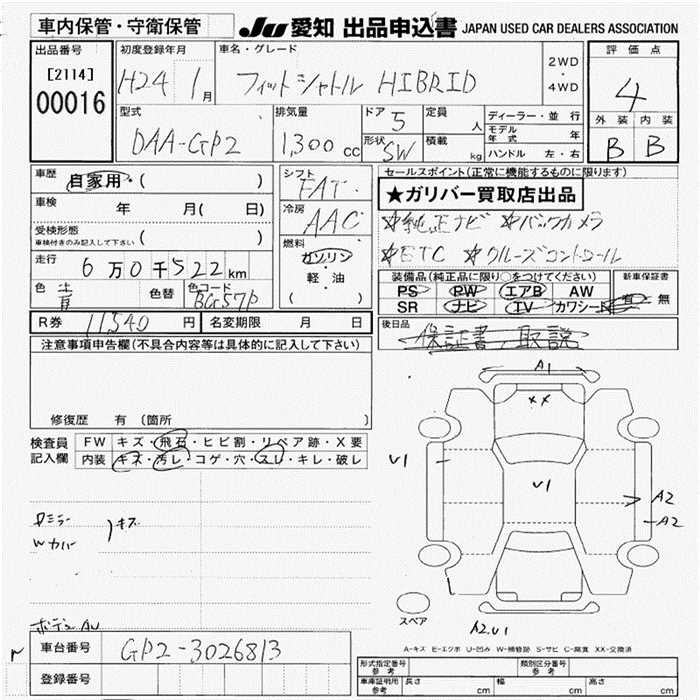 車内保管・守衛保管
JU 愛知 出品申込書 JAPAN USED CAR DEALERS ASSOCIATION
出品番号
[2114]
00016
初度登録年月
H24 1月
車名・グレード
フィットシャトル HIBRID
2WD
・
4WD
評価点
4
外装 内装
B B
型式
DAA-GP2
排気量
1,300 cc
ドア 5
形状 SW
定員 人
積載 kg
ディーラー・並行
モデル年式 年
ハンドル 左・右
車歴 自家用・( )
車検 年 月( 日)
受検形態
車検付きのみ記入して下さい ( )
走行 6万0千522km
色 青 色替 色コード BG57P
シフト FAT
冷房 AAC
燃料
ガソリン
・
軽・油
( )
セールスポイント(正常に機能するものに限ります)
★ガリバー買取店出品
☆純正ナビ ☆バックカメラ
☆ETC ☆クルーズコントロール
装備品(純正品に限り○をつけてください) 新車保証書
PS PW エアB AW 有・無
SR ナビ TV カワシート
R券 11540 円 名変期限 月 日
後日品
保証書、取説
注意事項申告欄(不具合内容等は具体的に記入して下さい)
修復歴 有 (箇所
検査員
記入欄
FW キズ・飛石・ヒビ割・リペア跡・X要
内装 キズ・汚レ・コゲ・穴・スレ・キレ・破レ
A1
XX
U1
U1
A2
A2
ミラー
Wカバー
キズ
スペア
A2.U1
A-キズ E-エクボ U-凹み W-補修跡 S-サビ C-腐食 XX-交換済
車台番号 GP2-3026813
登録番号
形式指定番号
参考
類別区分番号
参考
車庫証明用
参考
長さ cm 幅 cm 高さ cm